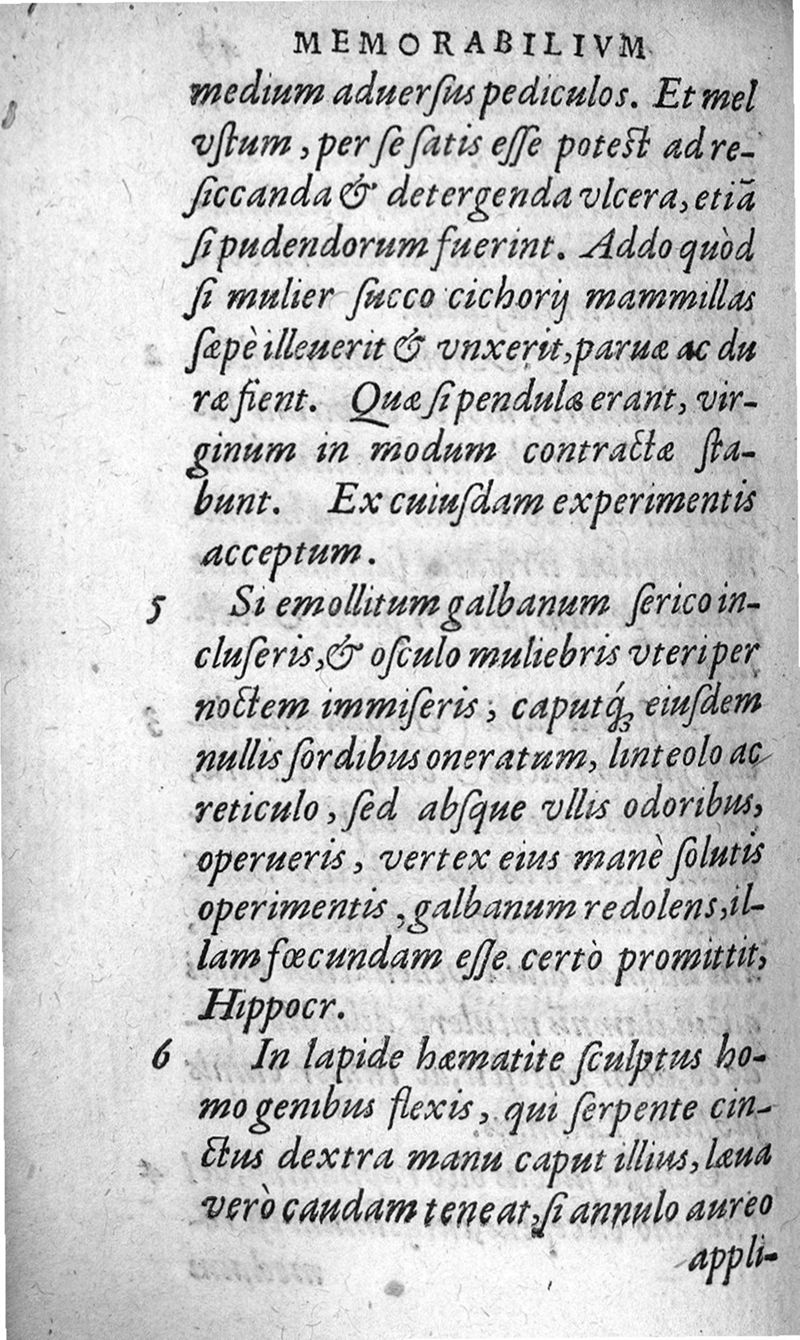 MEMORABILIVM
medium aduerſus pediculos. Et mel
vſtum, per ſe ſatis eſſe potest ad re-
ſiccanda & detergenda vlcera, etiã
ſi pudendorum fuerint. Addo quòd
ſi mulier ſucco cichorij mammillas
ſæpè illeuerit & vnxerit, paruæ ac du
ræ fient. Quæ ſi pendulæ erant, vir-
ginum in modum contractæ ſta-
bunt. Ex cuiuſdam experimentis
acceptum.
5 Si emollitum galbanum ſerico in-
cluſeris, & oſculo muliebris vteri per
noctem immiſeris, caputq́ꝫ eiuſdem
nullis ſordibus oneratum, linteolo ac
reticulo, ſed abſque vllis odoribus,
operueris, vertex eius manè ſolutis
operimentis, galbanum redolens, il-
lam fœcundam eſſe certò promittit,
Hippocr.
6 In lapide hæmatite ſculptus ho-
mo genibus flexis, qui ſerpente cin-
ctus dextra manu caput illius, læua
verò caudam teneat, ſi annulo aureo
appli-